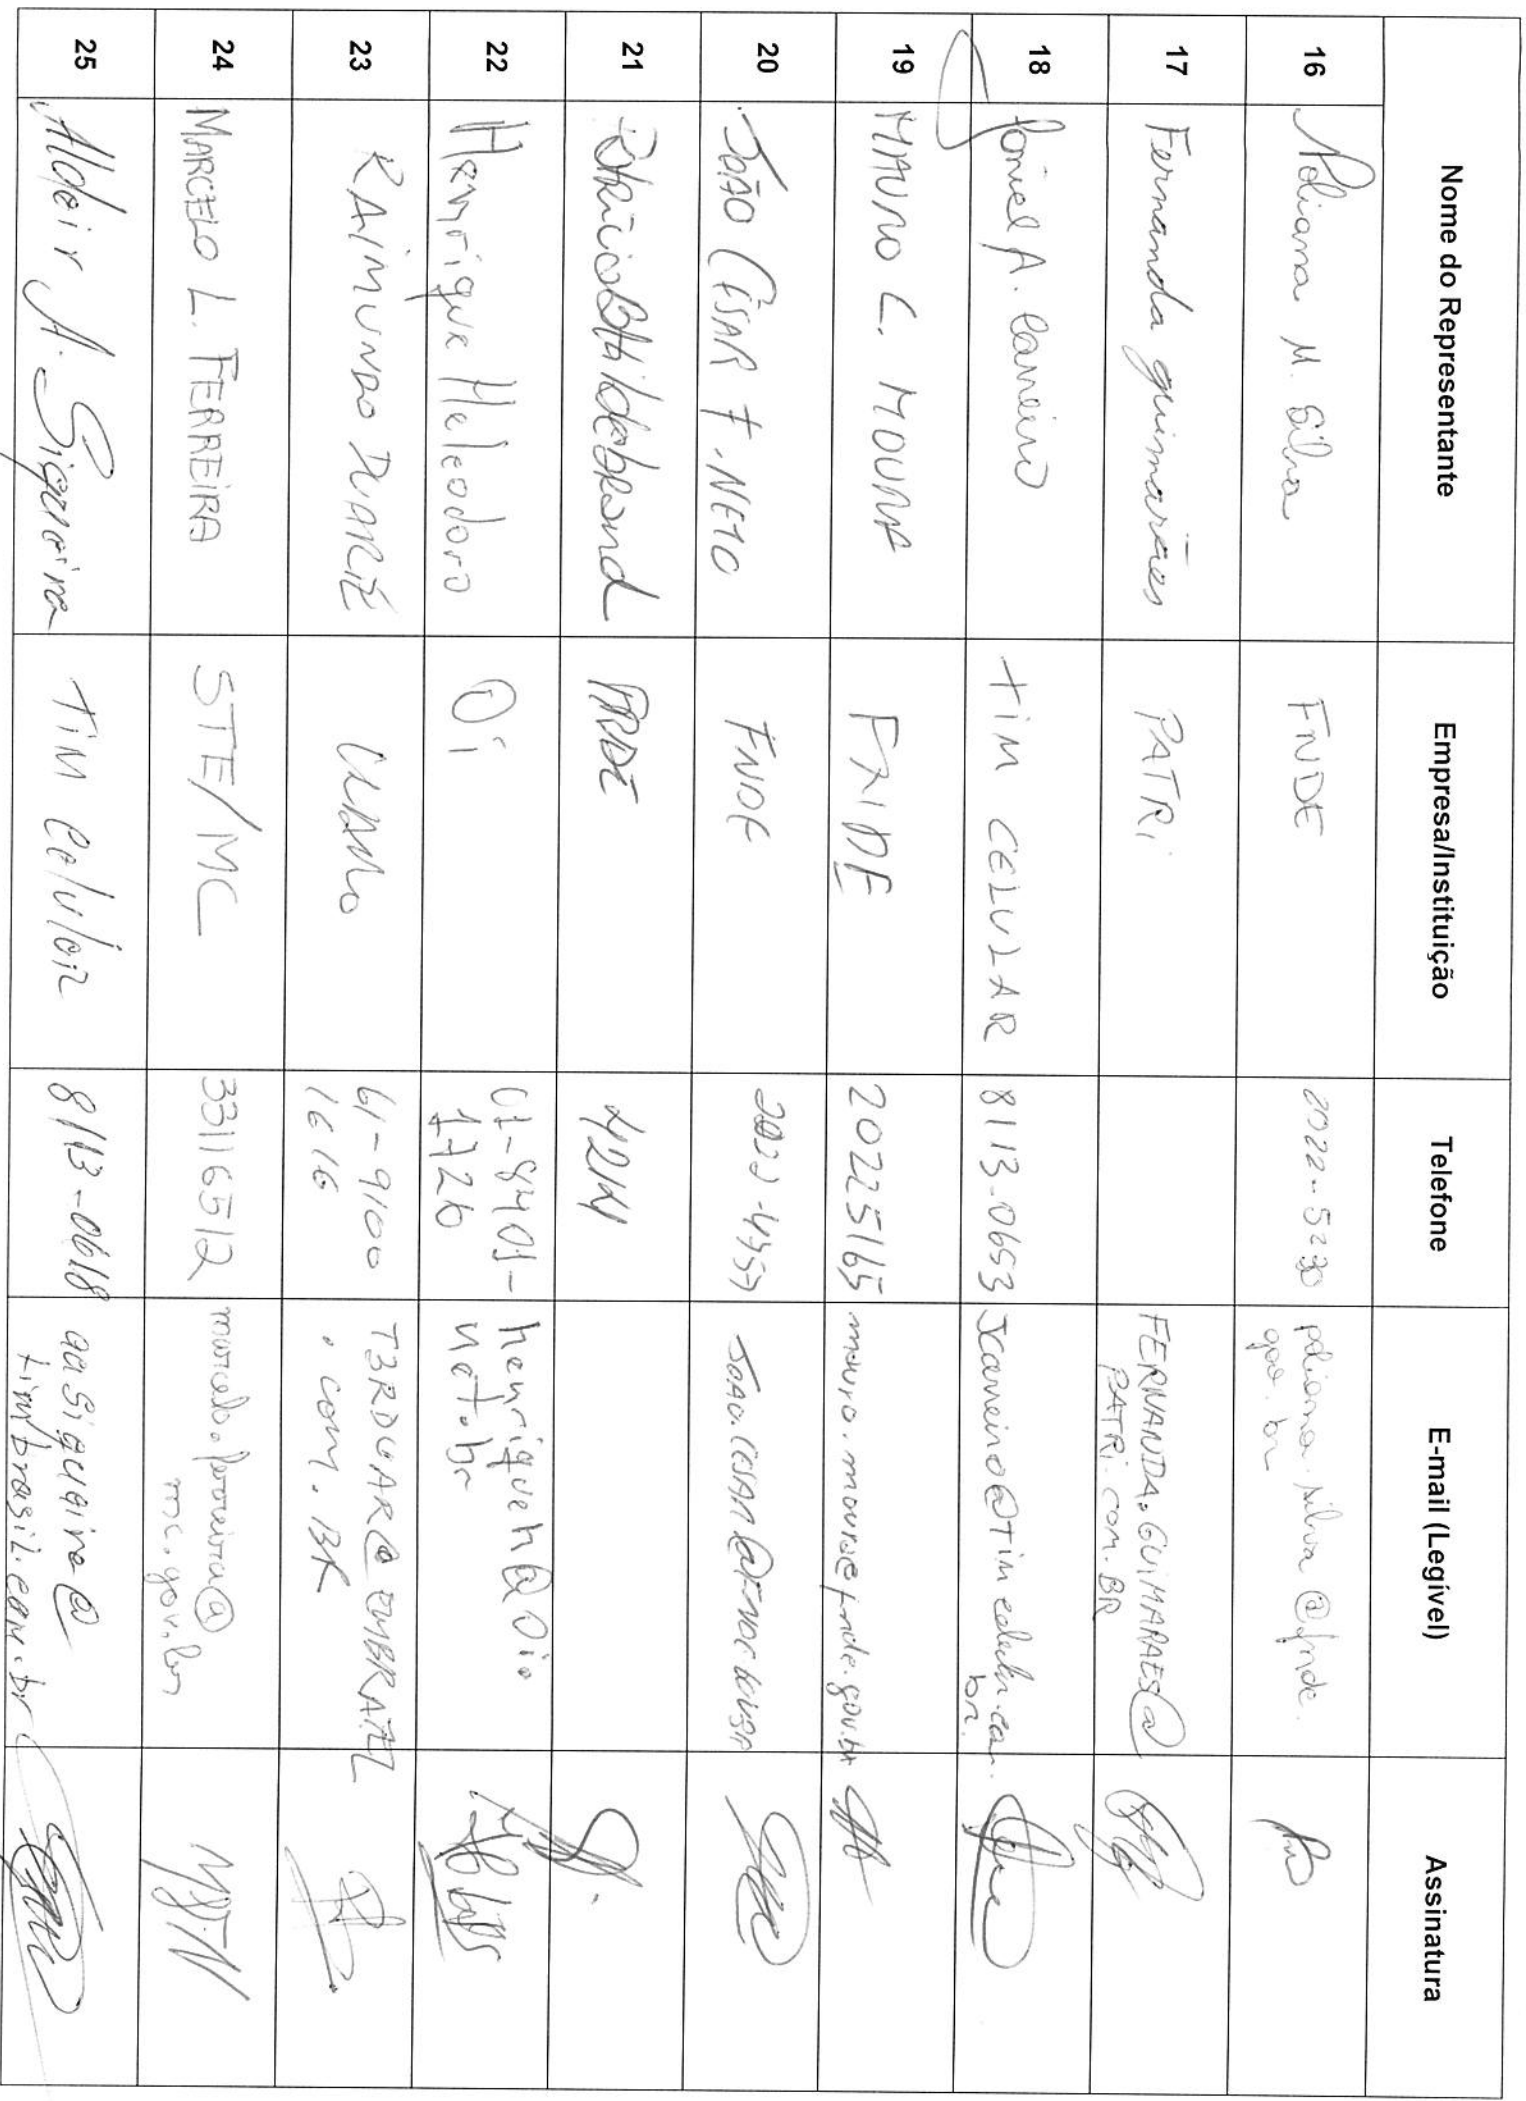 Nome do Representante Empresa/Instituição Telefone E-mail (Legível) Assinatura
16 Poliana M. Silva FNDE 2022-5230 poliana.silva@fnde.
gov.br
17 Fernanda guimarães PATRi FERNANDA.GUIMARAES@
PATRi.COM.BR
18 A. Carneiro TIM CELULAR 8113-0653 Jcarneiro@timcelular.com.
br.
19 MAURO C. MOURA FNDE 20225165 mauro.moura@fnde.gov.br
20 JOÃO CÉSAR F. NETO FNDE JOAO.CESAR@FNDE.GOV.BR
21 4214
22 Henrique Heleodoro Oi 61-8401-
1726 henriqueh@oi.
net.br
23 RAIMUNDO DUARTE 61-9100
1616 T3RDUAR@EMBRATEL
.com.BR
24 MARCELO L. FERREIRA STE/MC 33116512 marcelo.ferreira@
mc.gov.br
25 Aldair A. Siqueira TIM Celular 8113-0618 aasiqueira@
timbrasil.com.br